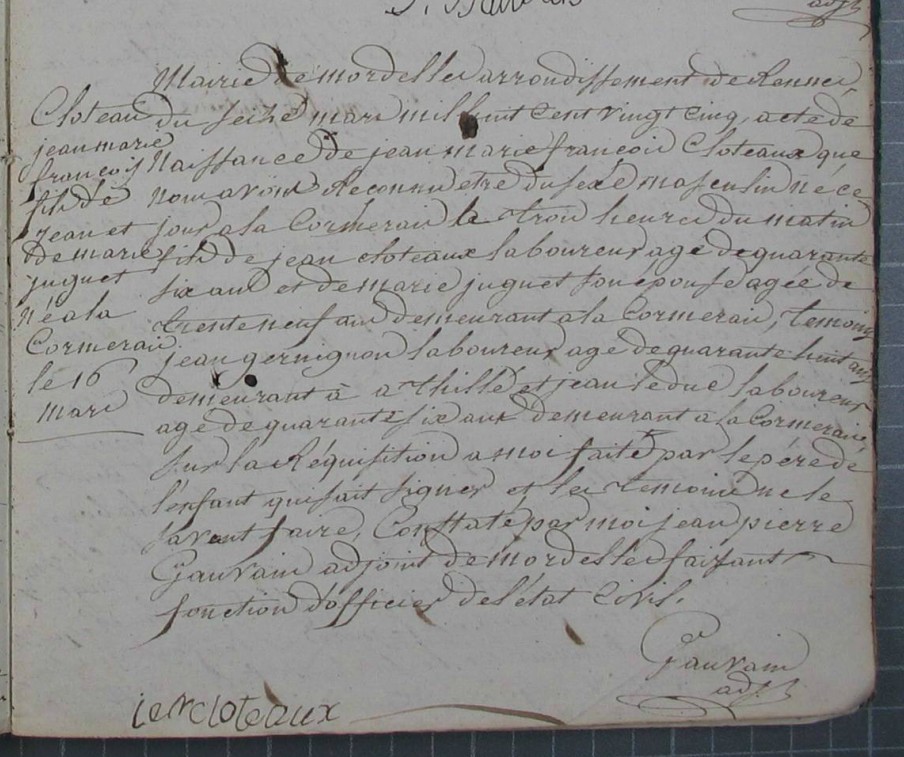 adjt
Cloteau
jean marie
françois
fils de
jean et
de marie
juguet
né a la
Cormerais
le 16
mars
Mairie de mordelles arrondissement de Rennes,
du seize mars mil huit cent vingt cinq, acte de
Naissance de jean marie françois Cloteaux que
nous avons Reconnu etre du sexe masculin né ce
jour a la Cormerais le trois heures du matin
fils de jean cloteaux laboureur agé de quarante
six ans et de marie juguet son épouse agée de
trente neuf ans demeurant a la Cormerais, temoins
jean gernignon laboureur agé de quarante huit ans
demeurant à athillé et jean leduc laboureur
agé de quarante six ans demeurant a la Cormerais,
sur la Réquisition a moi faite par le pére de
l'enfant qui sait signer et les temoins ne le
savent faire, Constaté par moi jean pierre
Gauvain adjoint de mordelles faisant
fonction d'officier de l'état civil.
Gauvain
adjt
ien cloteaux